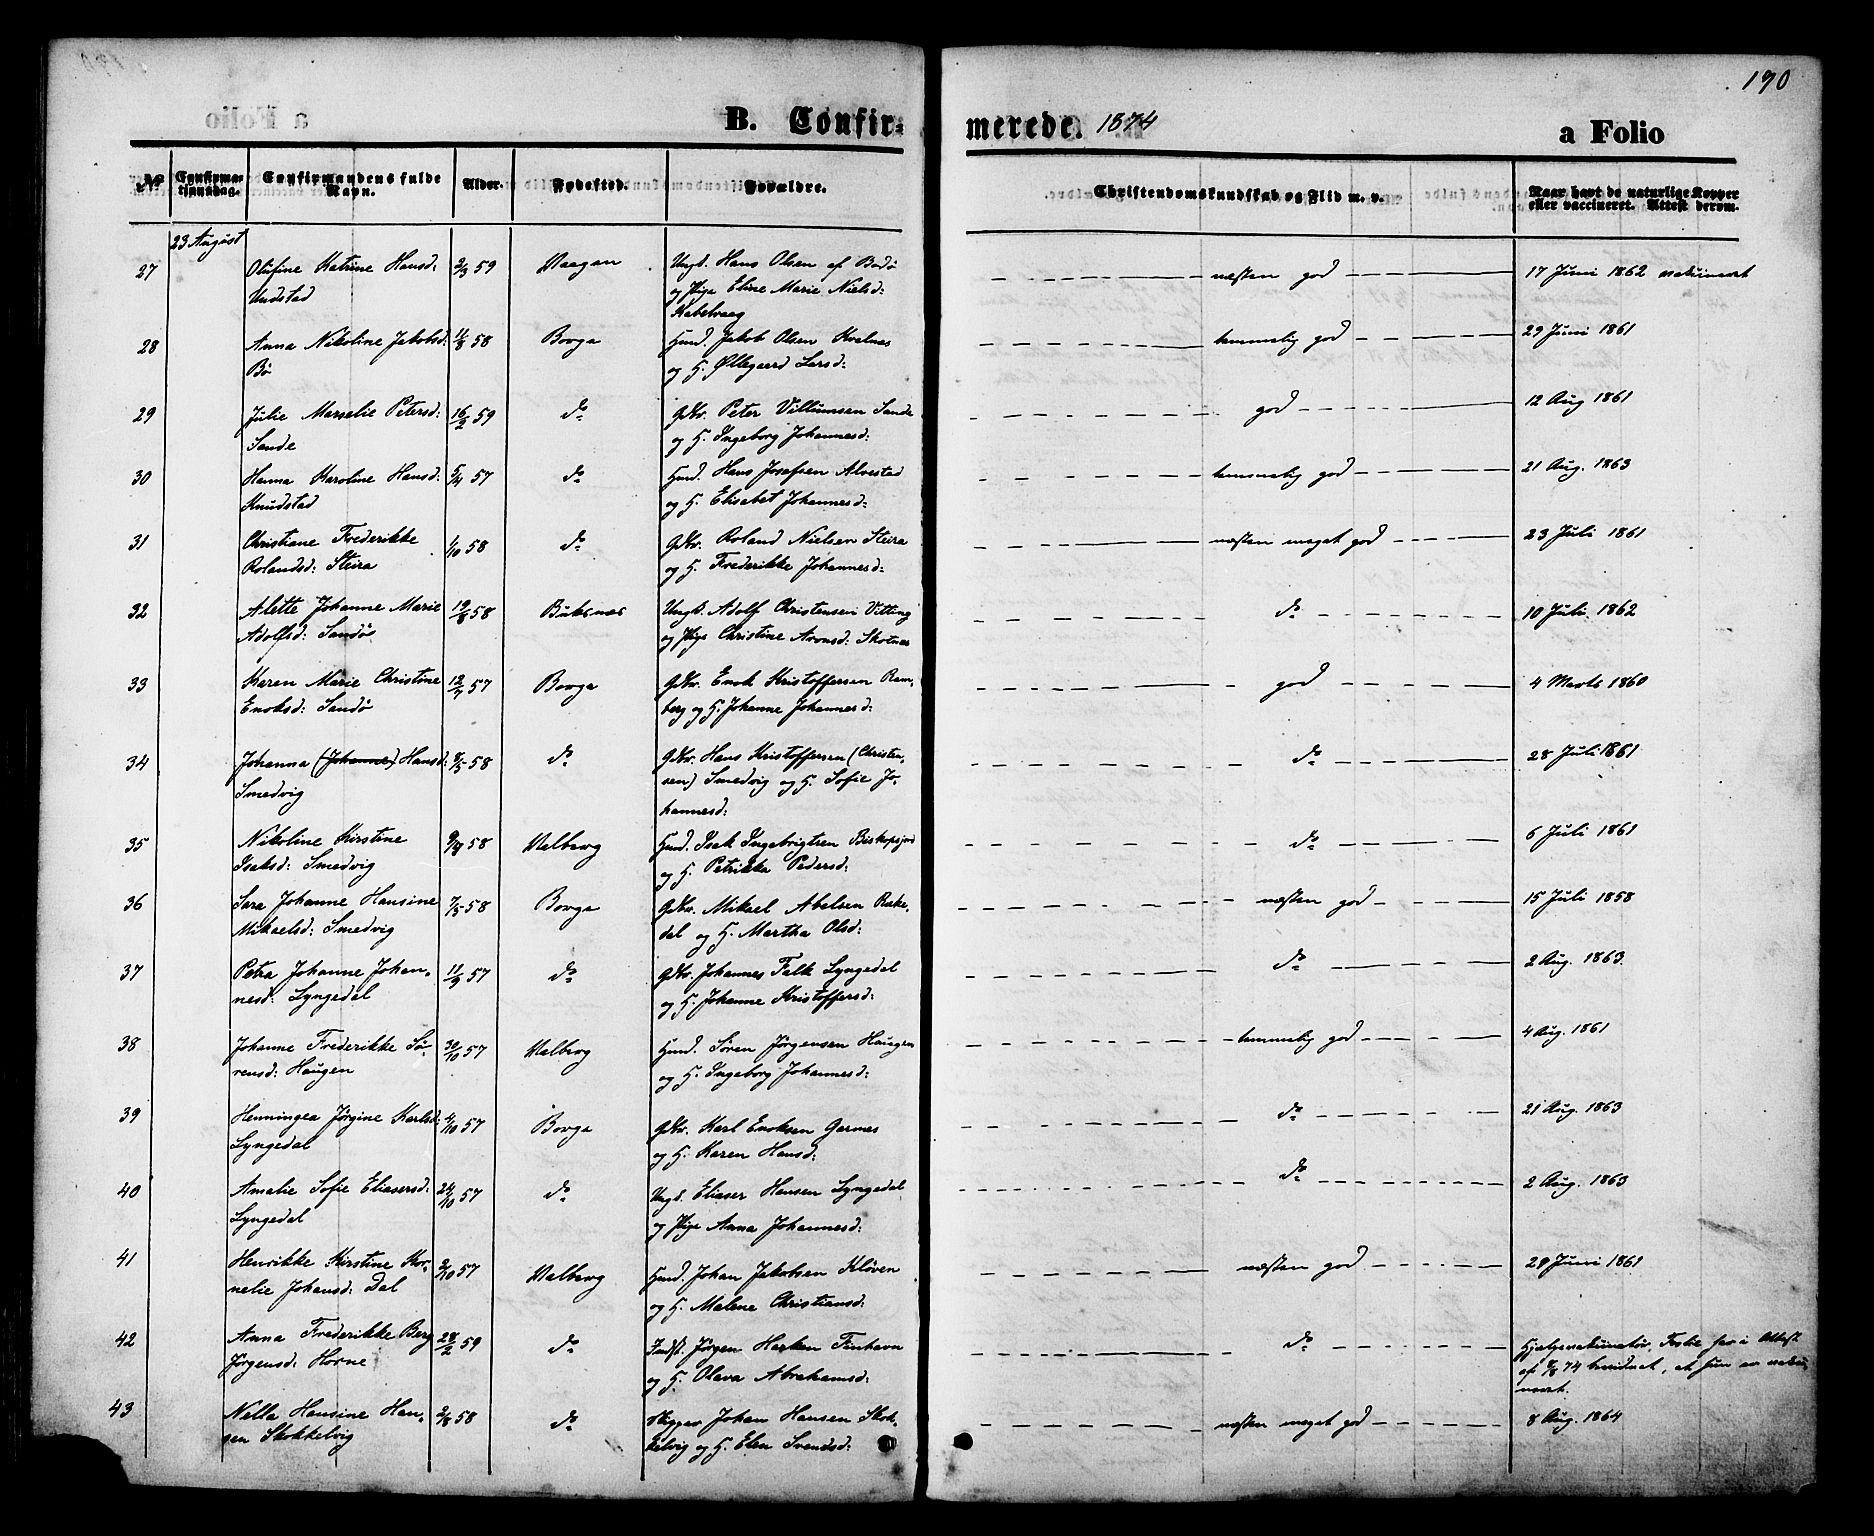 190
a Folio
B. Confir-
merede. 1874
a Folio
No Confirmationsdag. Confirmandens fulde Navn. Alder. Fødested. Forældre. Christendomskundskab og Flid m. v. Naar havt de naturlige Kopper eller vaccineret. Attest derom.
23 August
27 Olufine Katrine Hansd: 2/3 59 Vaagan Ungk. Hans Olsen af Bodø næsten god 17 Juni 1862 vakcineret
Undstad og Pige Eline Marie Nielsd:
Kabelvaag
28 Anna Nikoline Jakobsd: 11/8 58 Borge Husmd. Jakob Olsen Hvalnes temmelig god 29 Juni 1861
Bö og H. Øllegaard Larsd:
29 Julie Marselie Petersd: 16/2 59 do Gdbr. Peter Villumsen Sande god 12 Aug 1861
Sande og H. Ingeborg Johannesd:
30 Hanna Karoline Hansd: 5/4 57 do Husmd. Hans Josefsen Alvestad temmelig god 21 Aug. 1863
Knudstad og H. Elisabet Johannesd:
31 Christiane Frederikke 1/10 58 do Gdbr. Roland Nielsen Steira næsten meget god 23 Juli 1861
Rolandsd: Steira og H. Frederikke Johannesd:
32 Alette Johanne Marie 19/8 58 Buksnes Ungk. Adolf Christensen Vitting do 10 Juli 1862
Adolfsd: Sandö og Pige Christine Aronsd: Skotnes
33 Karen Marie Christine 12/7 57 Borge Gdbr. Enok Kristoffersen Ram- god 4 Marts 1860
Enoksd: Sandö berg og H. Johanne Johannesd:
34 Johanna (Johanne) Hansd: 8/5 58 do Gdbr. Hans Kristoffersen (Christen- do 28 Juli 1861
Smedvig sen) Smedvig og H. Sofie Jo-
hannesd:
35 Nikoline Kirstine 9/4 58 Valberg Husmd. Isak Ingebrigtsen Biskopsjord do 6 Juli 1861
Isaksd: Smedvig og H. Petrikka Pedersd:
36 Sara Johanne Hansine 7/5 58 Borge Gdbr. Mikael Abelsen Rake- næsten god 15 Juli 1858
Mikaelsd: Smedvig dal og H. Martha Olsd:
37 Petra Johanne Johan- 11/9 57 do Gdbr. Johannes Falk Lyngedal do 2 Aug. 1863
nesd: Lyngedal og H. Johanne Kristoffersd:
38 Johanne Frederikke Sö- 30/10 57 Valberg Husmd. Sören Jörgensen Haugen temmelig god 4 Aug. 1861
rensd: Haugen og H. Ingeborg Johannesd:
39 Henningea Jörgine Karlsd: 4/10 57 Borge Gdbr. Karl Enoksen Garnes do 21 Aug. 1863
Lyngedal og H. Karen Hansd:
40 Amalie Sofie Eliasersd: 24/10 57 do Ungk. Eliaser Hansen Lyngedal do 2 Aug. 1863
Lyngedal og Pige Anna Johannesd:
41 Henrikke Kirstine Kor- 2/10 57 Valberg Husmd. Johan Jakobsen Klöven næsten god 29 Juni 1861
nelie Johansd: Dal og H. Malene Christiansd:
42 Anna Frederikke Berg 28/2 59 do Indst. Jörgen Harken Finhavn do Hjælpevakcinatör har i Attest
Jörgensd: Horne og H. Olava Abrahamsd: af 8/8 74 bevidnet, at hun er vakci-
neret.
43 Nella Hansine Han- 2/8 58 do Skipper Johan Hansen Skok- næsten meget god 8 Aug. 1864
sen Skokkelvig kelvig og H. Elen Svendsd: